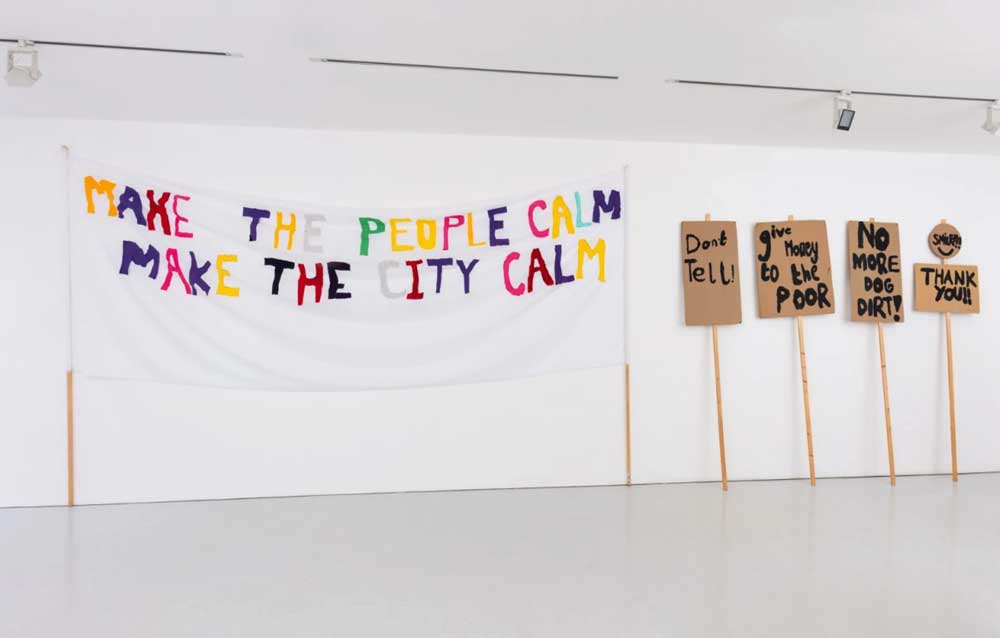 MAKE THE PEOPLE CALM
MAKE THE CITY CALM
Dont
Tell!
give
Money
to the
POOR
NO
MORE
DOG
DIRT!
SMILE!!!
THANK
YOU!!